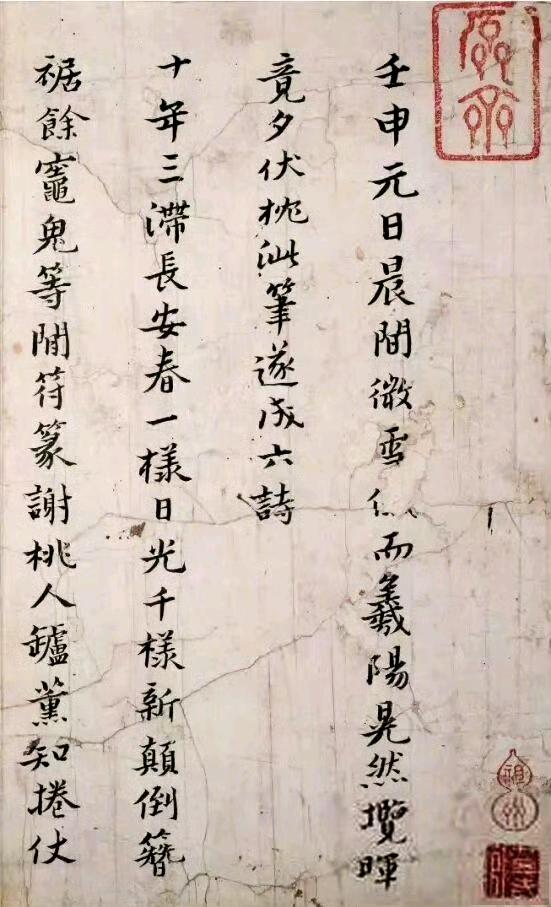 壬申元日晨間微雪俄而羲陽晃然攬暉
竟夕伏枕泚筆遂成六詩
十年三滯長安春一樣日光千樣新顛倒簪
裾餘竈鬼等閒符篆謝桃人罏薰知捲仗